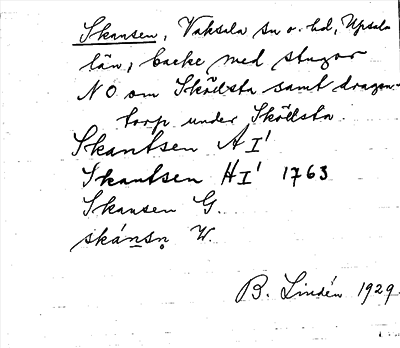 Skansen, Vaksala sn o. hd, Upsala
län, backe med stugor
NO om Skölsta samt dragon-
torp under Skölsta.
Skantsen AI'
Skantsen HI' 1763
Skansen G.
skánsn W.
B. Lindén 1929.